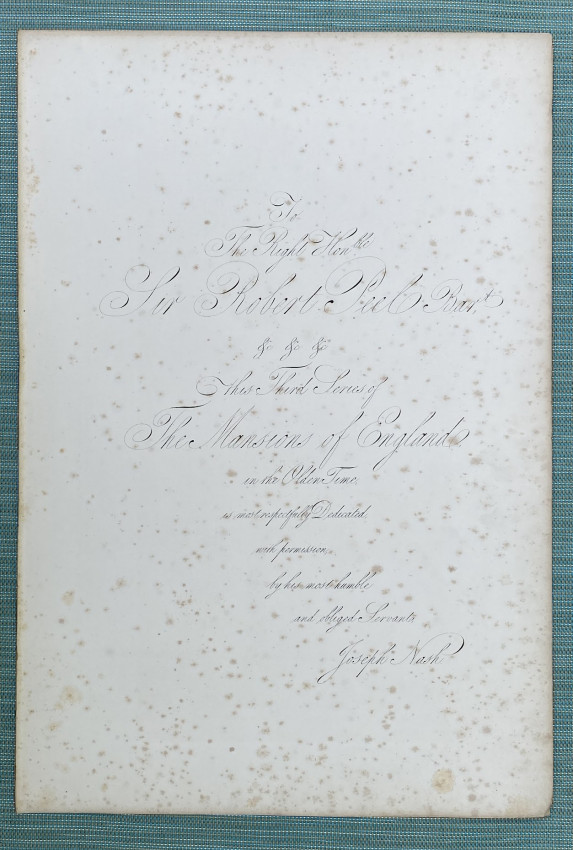 To
The Right Honble
Sir Robert Peel Bart
&c &c &c
This Third Series of
The Mansions of England
in the Olden Time,
is most respectfully Dedicated,
with permission,
by his most humble
and obliged Servant,
Joseph Nash